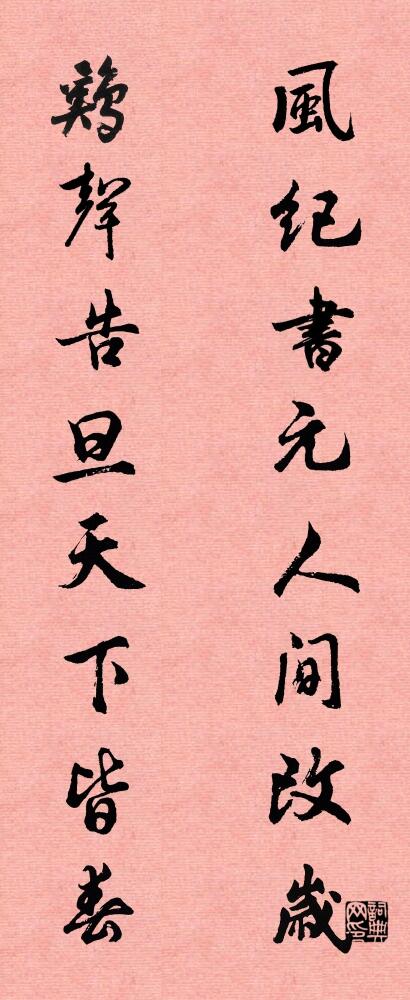 風紀書元人间改歲
鷄聲告旦天下皆春
詞典網印